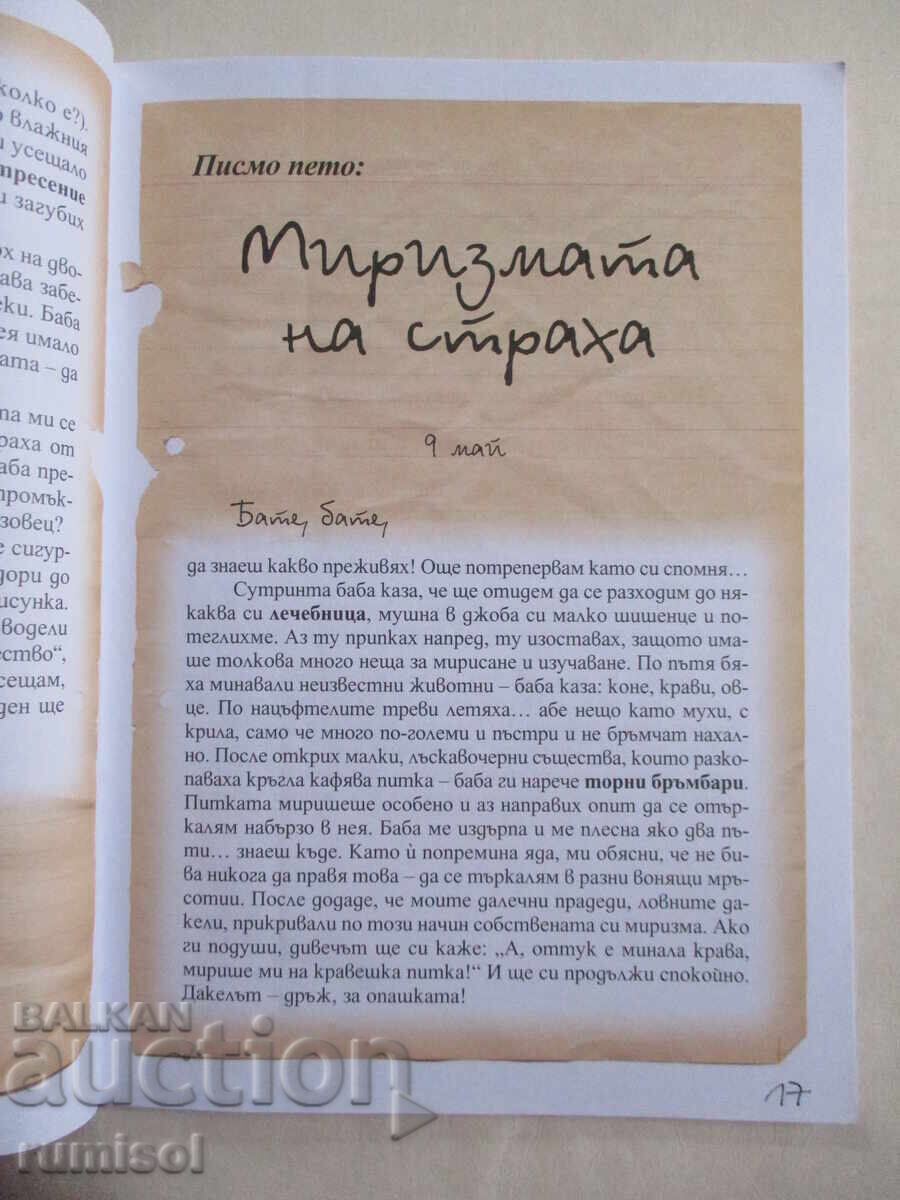 колко е?).
влажния
усещало
тресение
загубих
на дво-
забе-
Баба
имало
да
ми се
от
пре-
промък-
сигур-
до
водели
ден ще
Писмо пето:
Миризмата
на страха
9 май
Бате, бате,
да знаеш какво преживях! Още потрепервам като си спомня…
Сутринта баба каза, че ще отидем да се разходим до ня-
каква си лечебница, мушна в джоба си малко шишенце и по-
теглихме. Аз ту припках напред, ту изоставах, защото има-
ше толкова много неща за мирисане и изучаване. По пътя бя-
ха минавали неизвестни животни – баба каза: коне, крави, ов-
це. По нацъфтелите треви летяха… абе нещо като мухи, с
крила, само че много по-големи и пъстри и не бръмчат нахал-
но. После открих малки, лъскавочерни същества, които разко-
паваха кръгла кафява питка – баба ги нарече торни бръмбари.
Питката миришеше особено и аз направих опит да се отър-
калям набързо в нея. Баба ме издърпа и ме плесна яко два пъ-
ти… знаеш къде. Като ѝ попремина яда, ми обясни, че не би-
ва никога да правя това – да се търкалям в разни вонящи мръ-
сотии. После додаде, че моите далечни прадеди, ловните да-
кели, прикривали по този начин собствената си миризма. Ако
ги подуши, дивечът ще си каже: „А, оттук е минала крава,
мирише ми на кравешка питка!“ И ще си продължи спокойно.
Дакелът – дръж, за опашката!
17
BALKAN
auction
rumisol